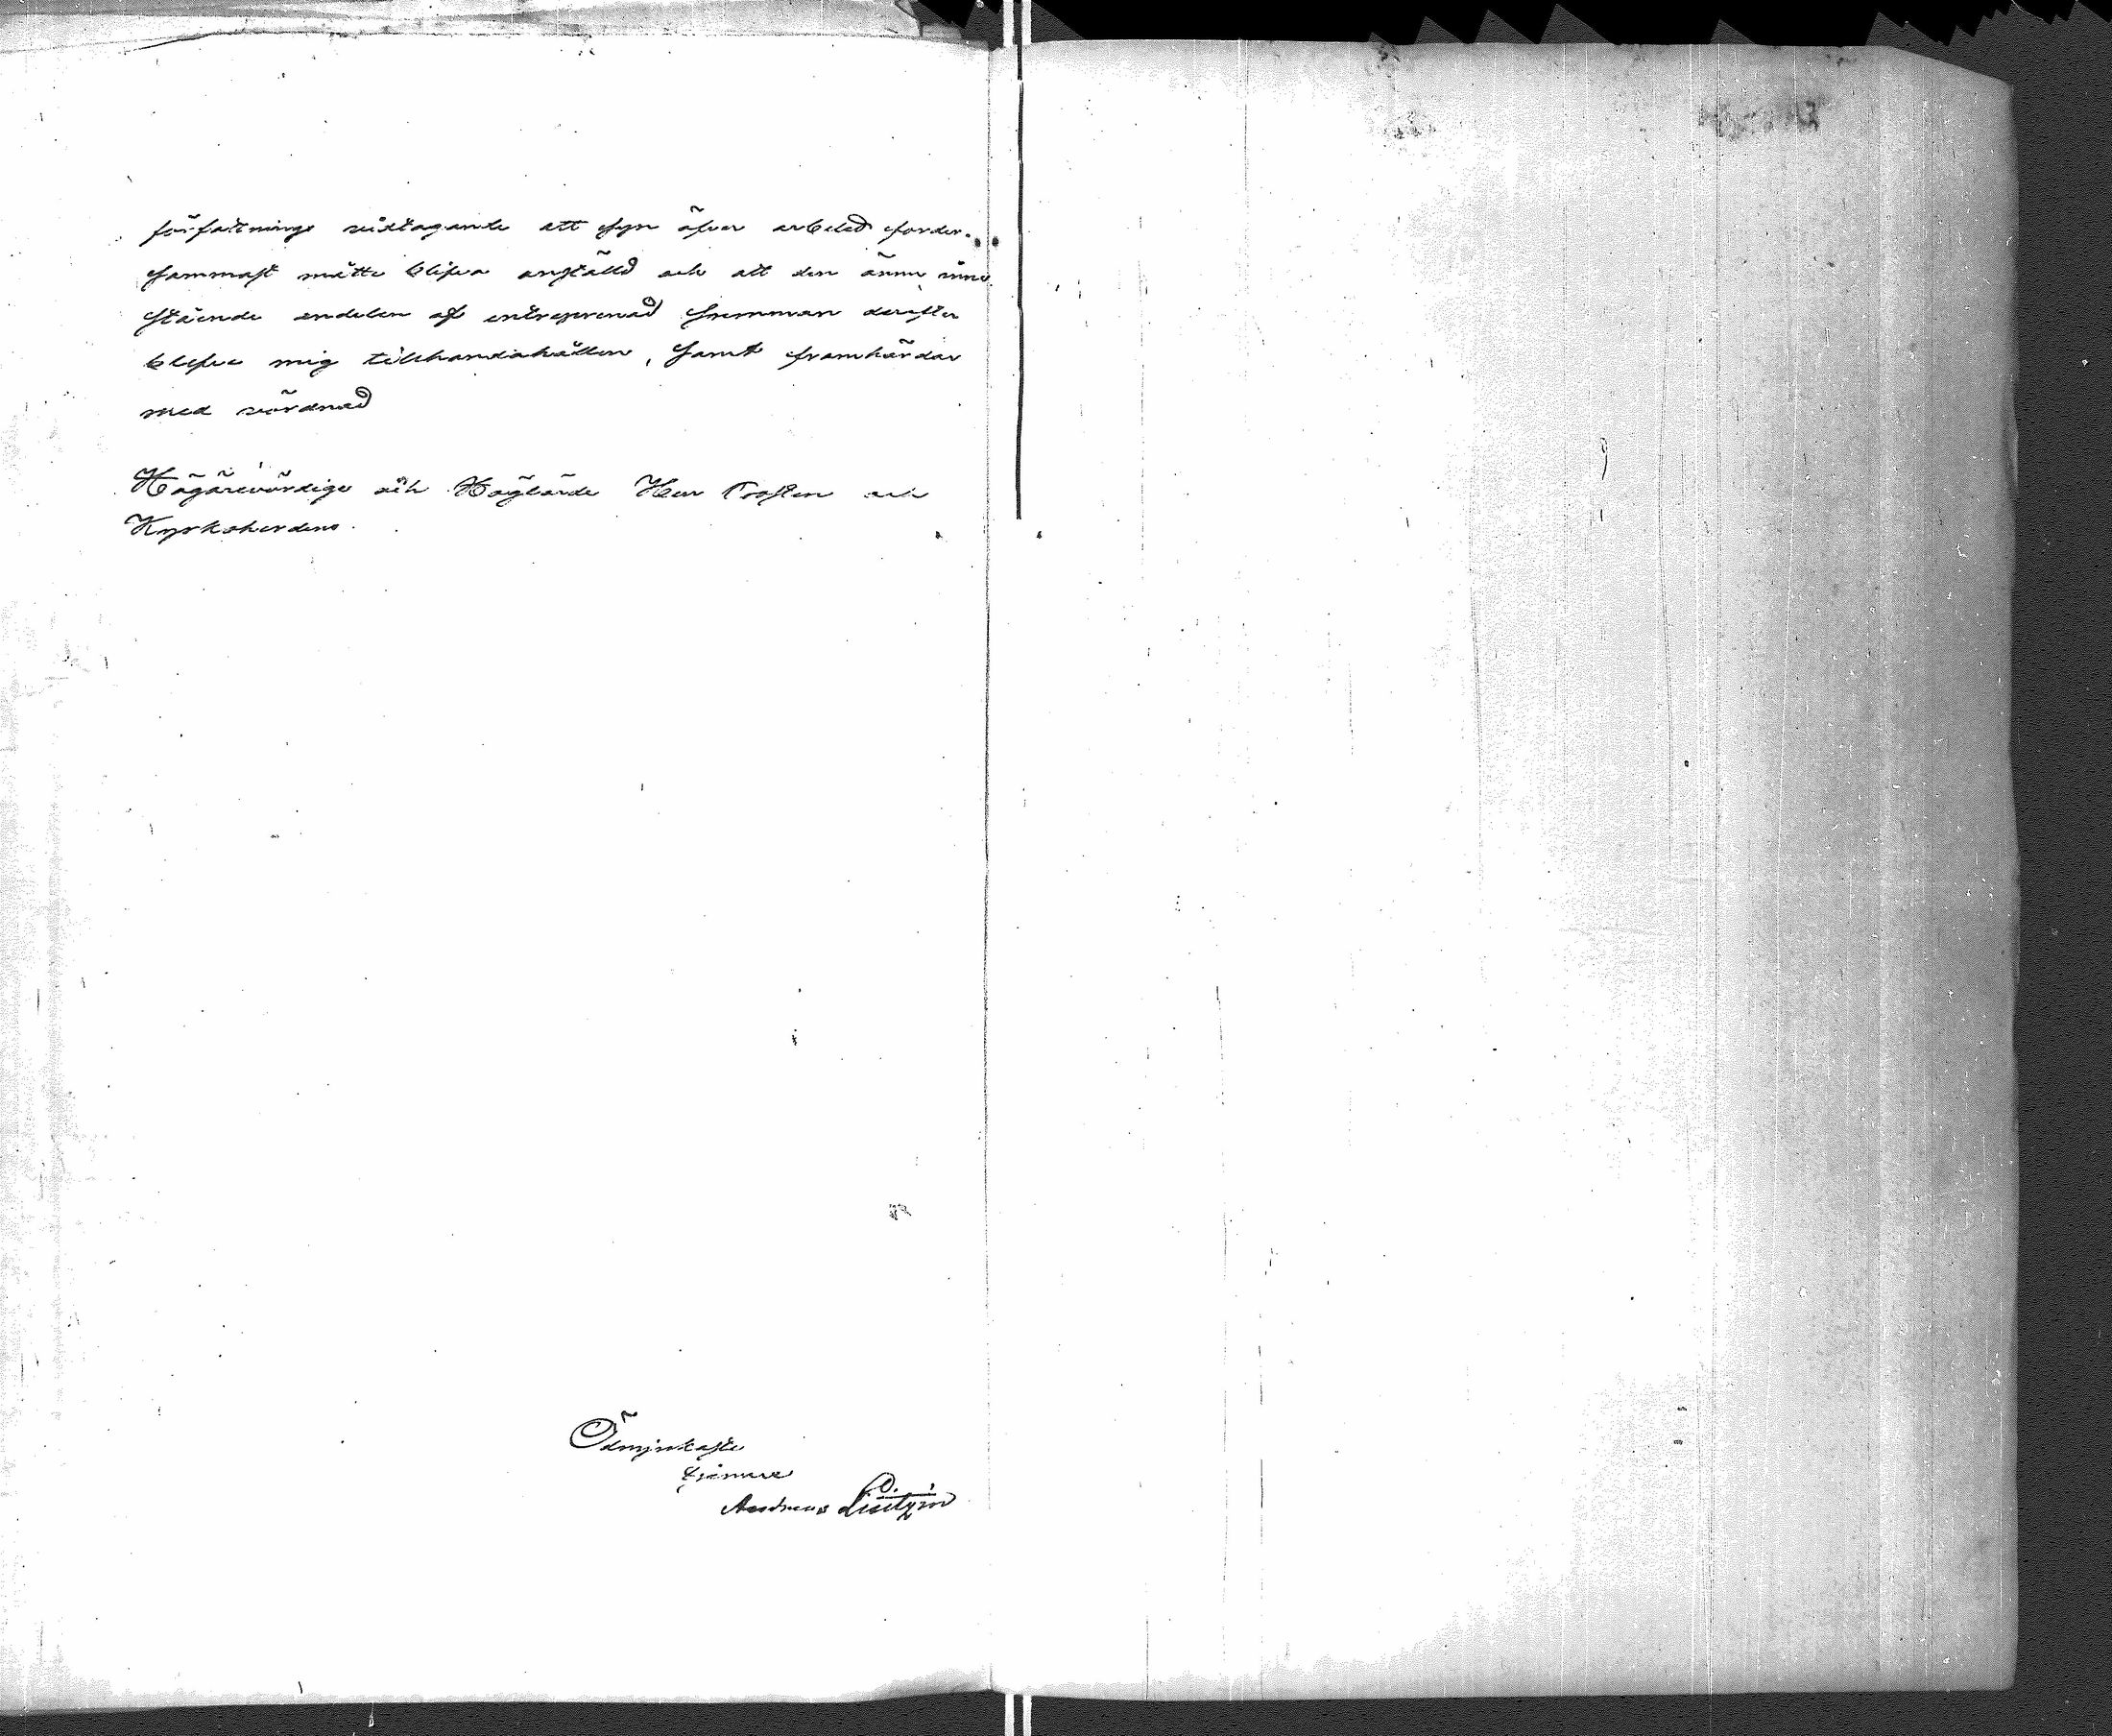 författnings vidtagande att syn öfver arbeted forder-
sammast måtte blifva anställd och att den ännu inne
stående andelen af entreprenad summan derefter
blifva mig tillhandahållen, samt framhärdar
med vördnad
Högärevördige och Höglärde Herr Prosten och
Kyrkoherdens
Ödmjukaste
tjenare
Andreas Lisitzin